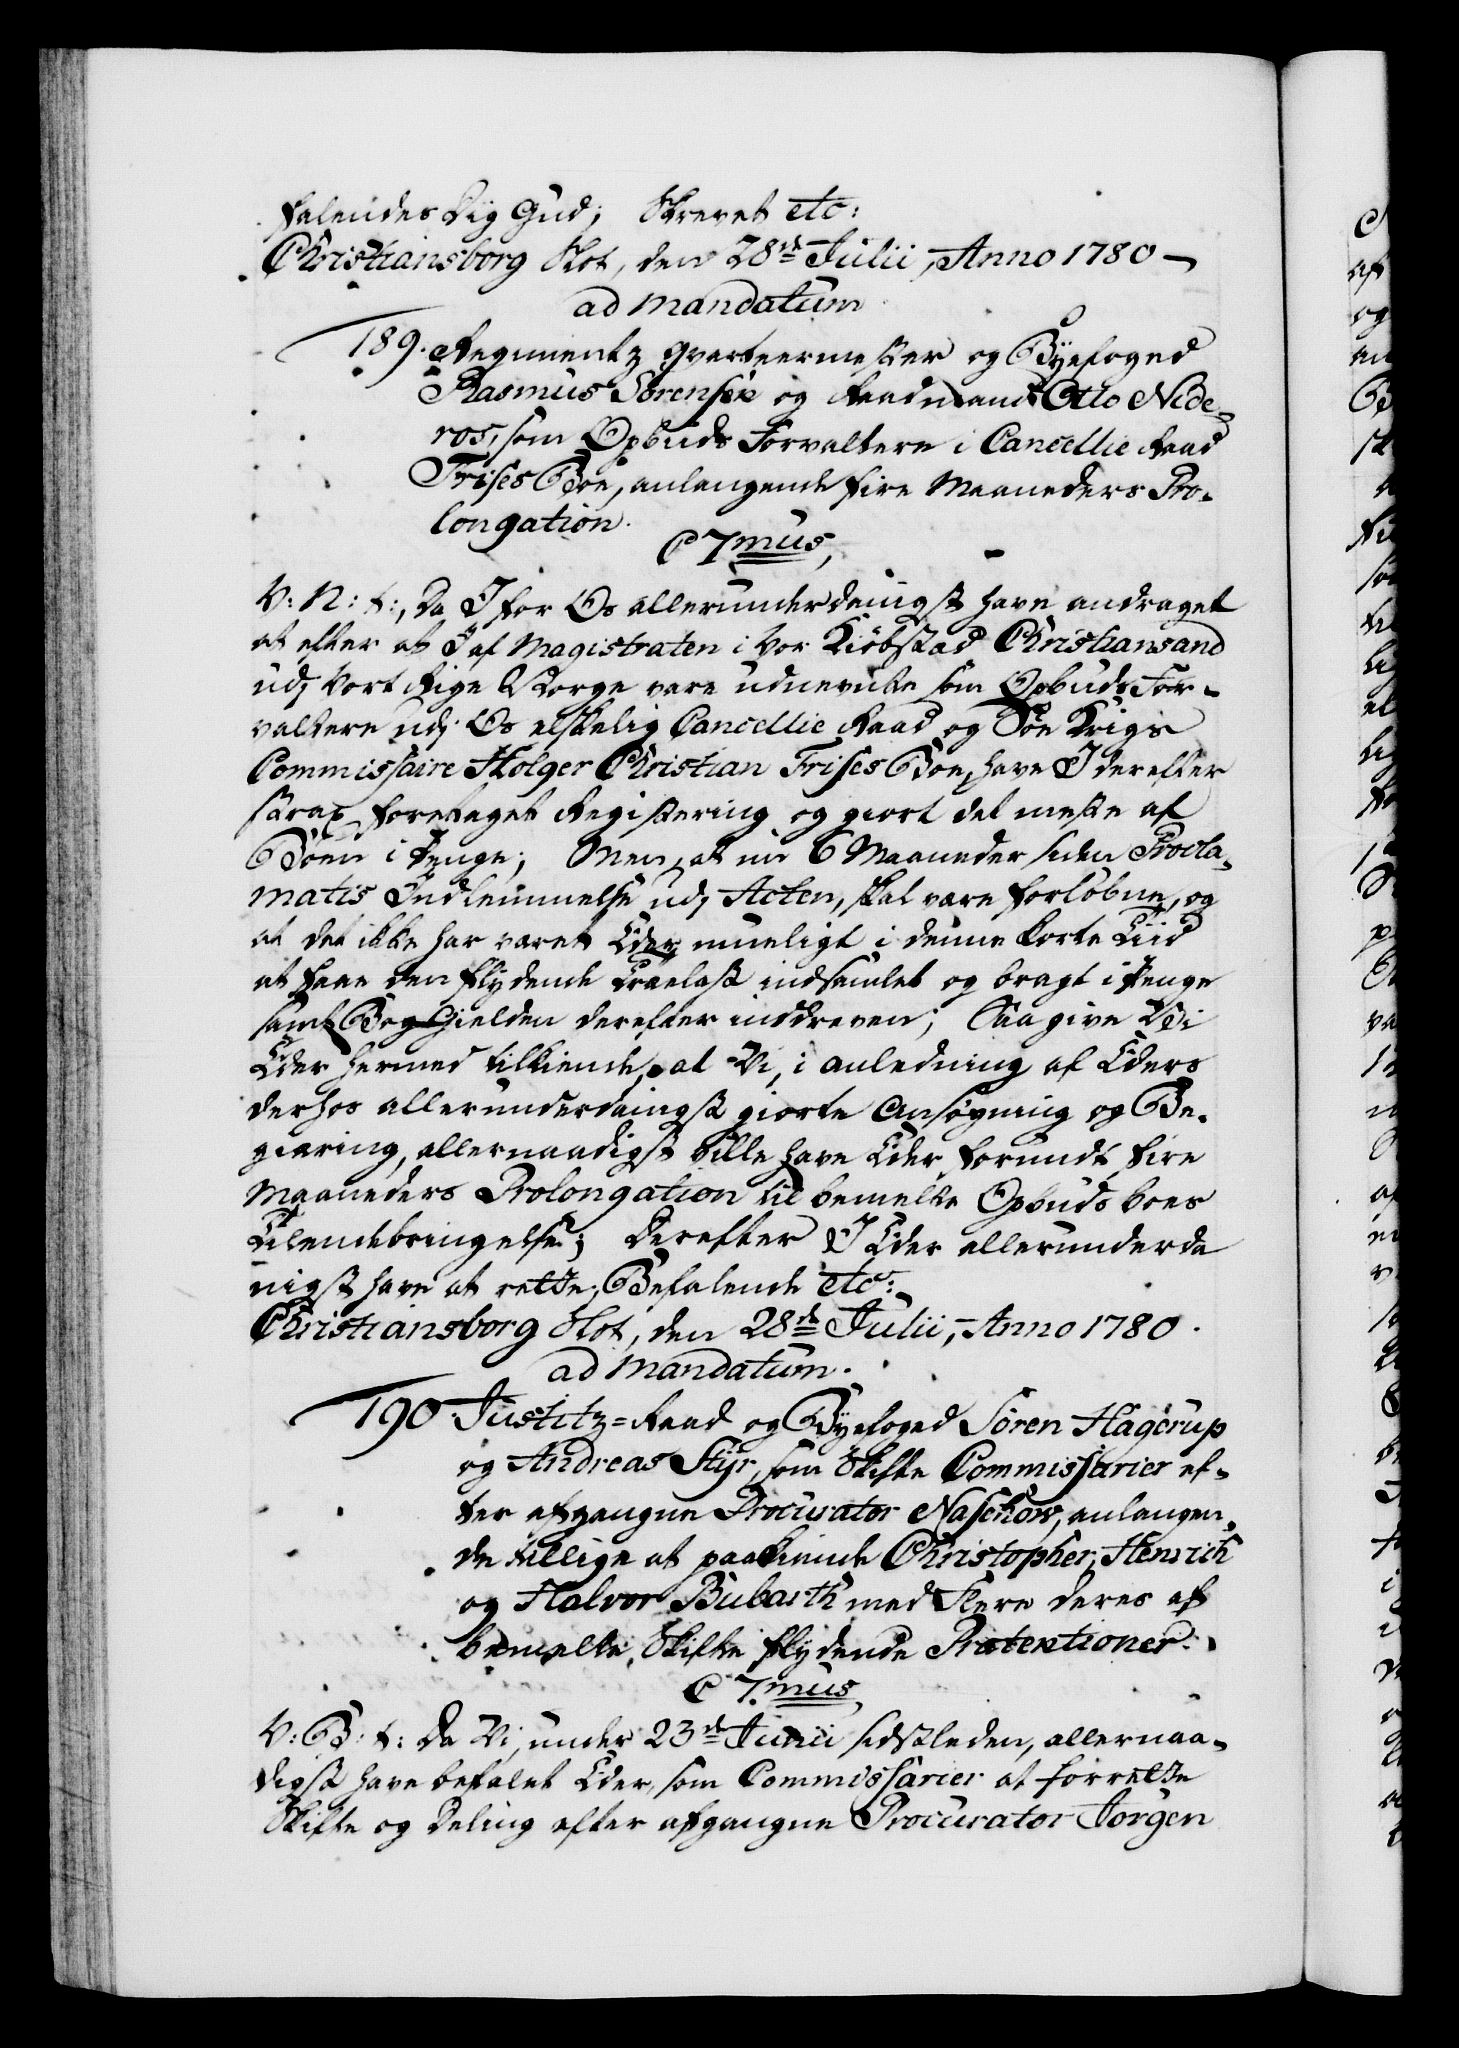 falendes Dig Gud; Skrevet etc:
Christiansborg Slot, den 28de Julii, Anno 1780 –
ad mandatum
189. Regimentz Qvarteermester og Byefoged
Rasmus Sörensen og Raadmand Otto Nide=
ros, som Opbuds Forvaltere i Cancellie Raad
Frises Boe, anlangende fire Maaneders Pro-
longation.
C 7mus,
V: N: t:, Da I for Os allerunderdanigst have andraget
at efter at I af Magistraten i Vor Kiöbstad Christiansand
udj Vort Rige Norge vare udnevnte som Opbuds For-
valtere udj Os elskelig Cancellie Raad og Söe Krigs
Commissaire Holger Christian Frises Boe, have I derefter
strax foretaget Registering og giort det meste af
Böen i Penge; Men, at nu 6 Maaneder siden Procla-
matis Indlemmelse udj Acten, skal være forlöbne, og
at det ikke har været Eder mueligt i denne korte Tiid
at faae den flydende indsamlet og bragt i Penge
samt Bog Gielden derefter inddreven; Saa give Vi
Eder hermed tilkiende, at Vi, i anledning af Eders
derhos allerunderdanigst giorte Ansögning og Be-
giæring, allernaadigst ville have Eder forundt fire
Maaneders Prolongation til bemelte Opbuds boes
Tilendebringelse; Derefter I Eder allerunderda
nigst have at rette; Befalende etc:
Christiansborg Slot, den 28de Julii, Anno 1780.
ad mandatum.
190. Justitz=Raad og Byefoged Sören Hagerup
og Andreas Styr, som Skifte Commissarier ef-
ter afgangne Procurator Naschow, anlangen-
de tillige at paakiende Christopher, Henrich
og Halvor Bubarth med Flere deres af
bemelte Skifte flydende Prætentioner.
C 7mus
V: B: t: Da Vi, under 23de Junii sidstleden, allernaa-
digst have befalet Eder, som Commissarier at forrette
Skifte og Deling efter afgangne Procurator Jörgen